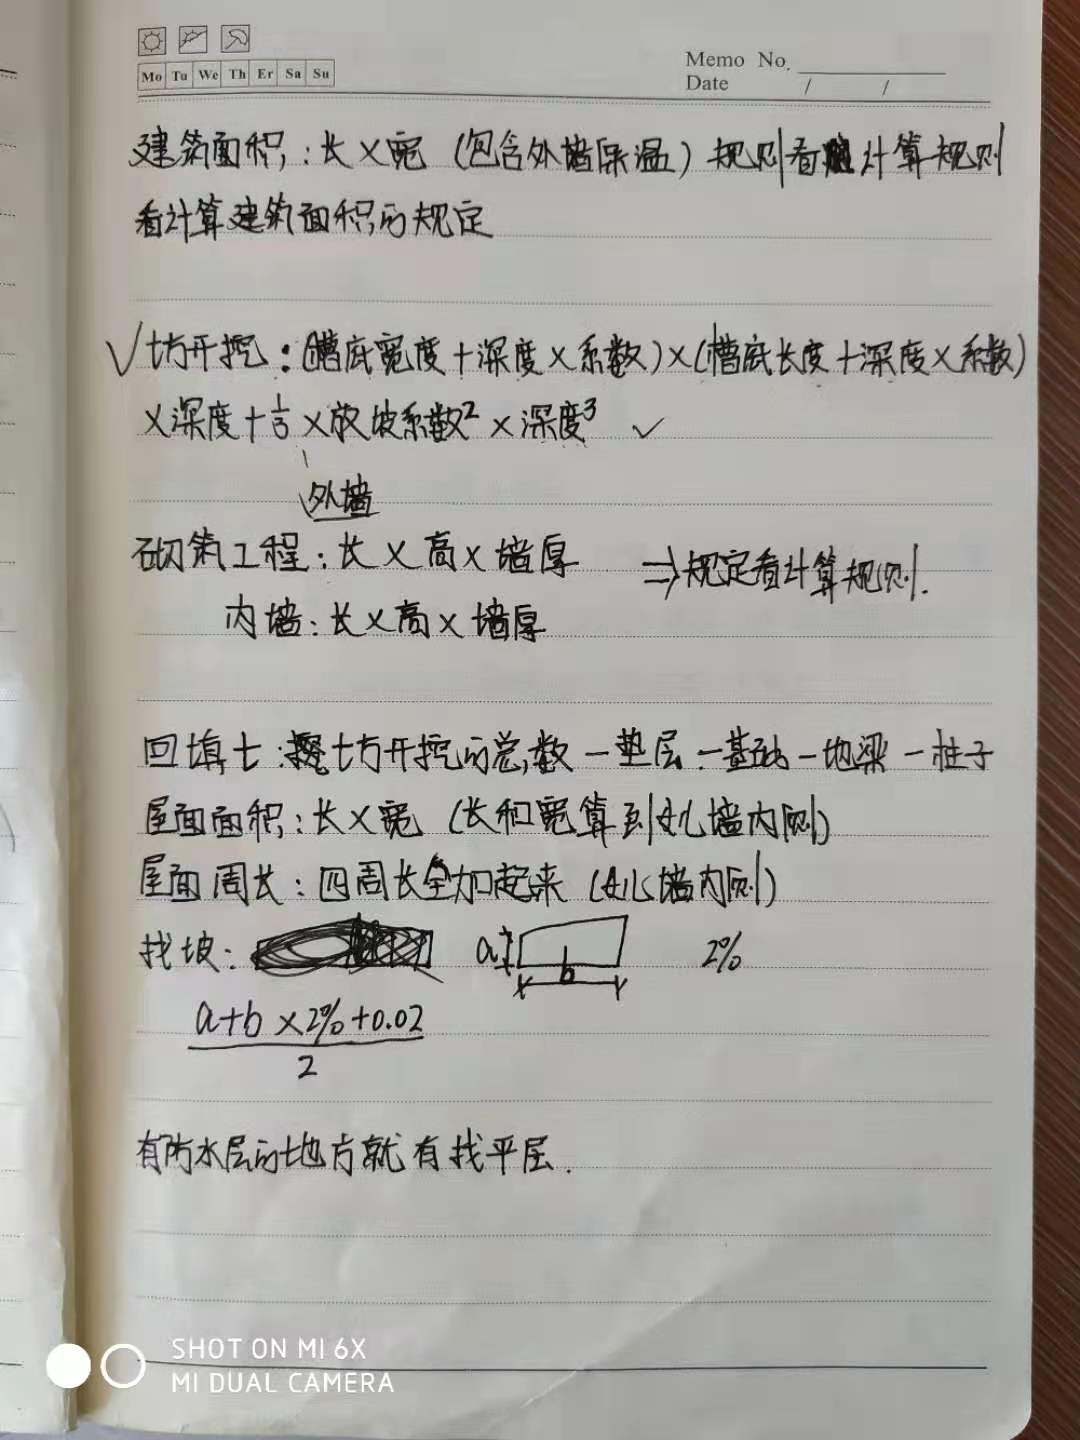 Mo Tu We Th Fr Sa Su
Memo No.
Date / /
建筑面积:长×宽(包含外墙保温)规则看计算规则
看计算建筑面积的规定
√土方开挖:(槽底宽度+深度×系数)×(槽底长度+深度×系数)
×深度+1/3×放坡系数²×深度³ √
外墙
砌筑工程:长×高×墙厚 ⇒规定看计算规则.
内墙:长×高×墙厚
回填土:土方开挖的总数-垫层-基础-地梁-柱子
屋面面积:长×宽(长和宽算到女儿墙内侧)
屋面周长:四周长全加起来(女儿墙内侧)
找坡: a b 2%
a+b×2%+0.02
2
有防水层的地方就有找平层.
SHOT ON MI 6X
MI DUAL CAMERA